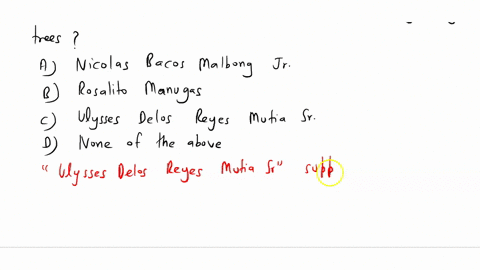 trees ?
A) Nicolas Bacos Malbong Jr.
B) Rosalito Manugas
C) Ulysses Delos Reyes Mutia Sr.
D) None of the above
"Ulysses Delos Reyes Mutia Sr" supp